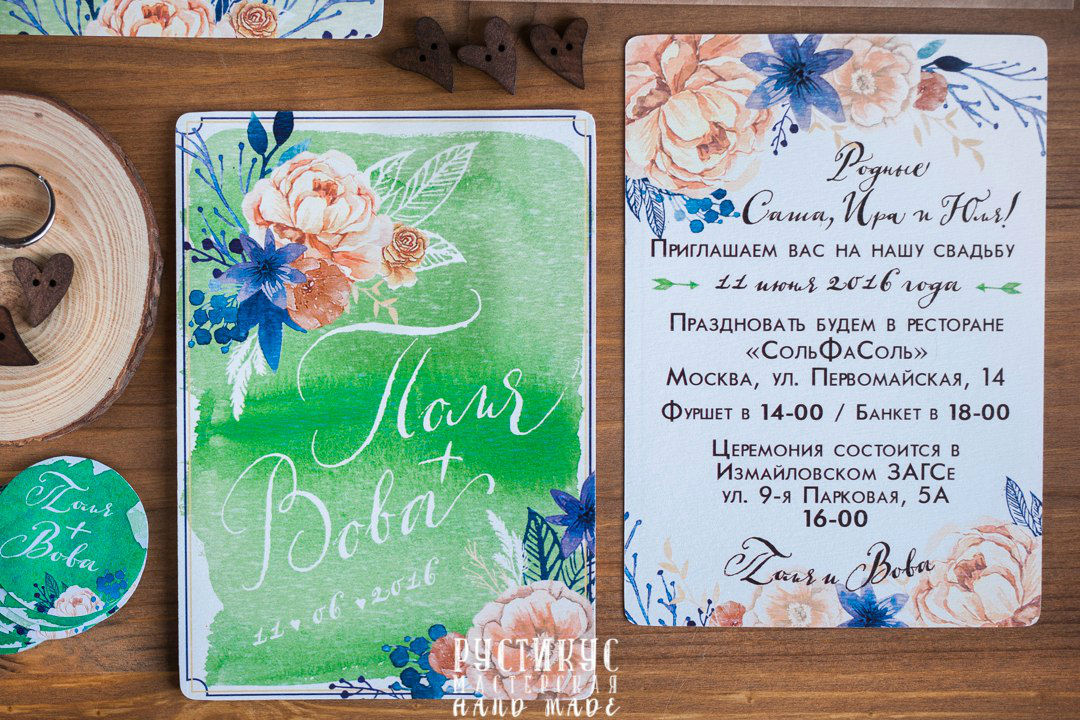 Поля
+
Вова
11 ♥ 06 ♥ 2016
Поля
+
Вова
Родные
Саша, Ира и Юля!
Приглашаем вас на нашу свадьбу
11 июня 2016 года
Праздновать будем в ресторане
«СольФаСоль»
Москва, ул. Первомайская, 14
Фуршет в 14-00 / Банкет в 18-00
Церемония состоится в
Измайловском ЗАГСе
ул. 9-я Парковая, 5А
16-00
Поля и Вова
РУСТИКУС
МАСТЕРСКАЯ
HAND MADE